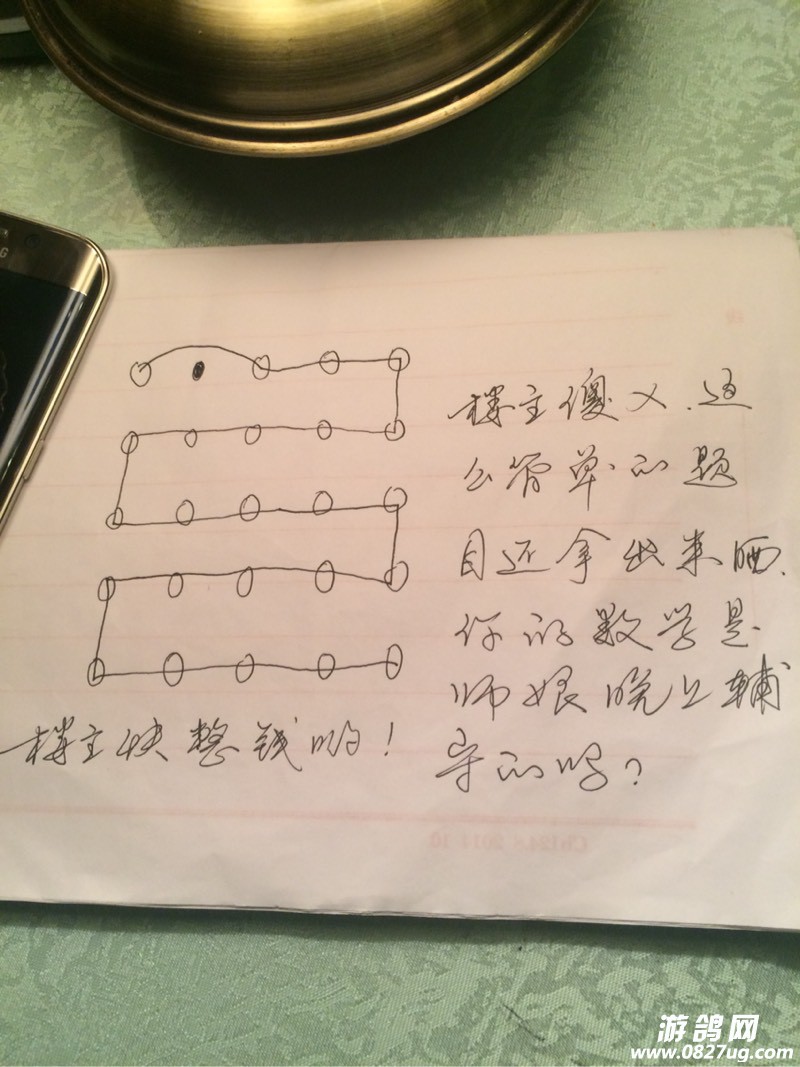 楼主傻乂.这
么简单的题
目还拿出来晒.
你的数学是
师娘晚上辅
导的吗?
楼主快整钱哟!
游鸽网
www.0827ug.com